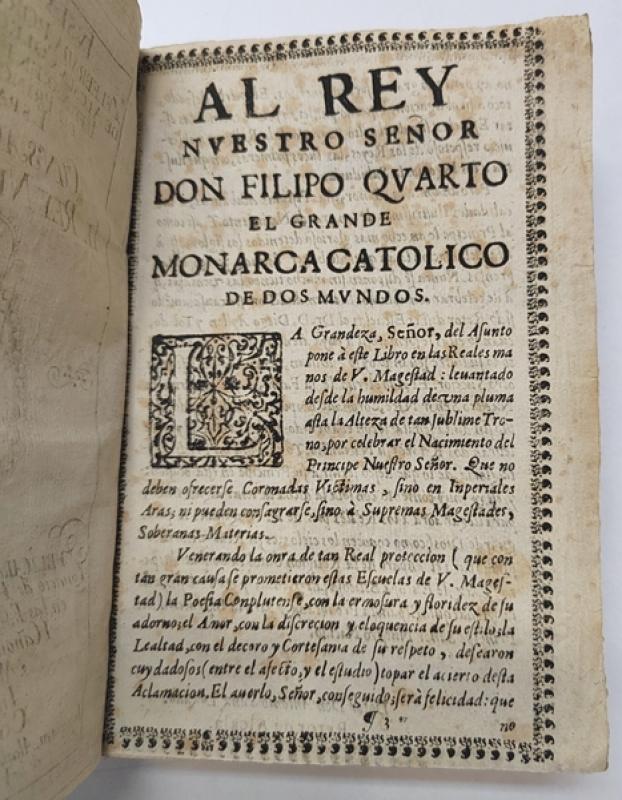 AL REY
NVESTRO SEÑOR
DON FILIPO QVARTO
EL GRANDE
MONARCA CATOLICO
DE DOS MVNDOS.
LA Grandeza, Señor, del Asunto
pone à este Libro en las Reales ma
nos de V. Magestad : levantado
desde la humildad de una pluma
asta la Alteza de tan sublime Tro-
no; por celebrar el Nacimiento del
Principe Nuestro Señor. Que no
deben ofrecerse Coronadas Victimas, sino en Inperiales
Aras; ni pueden consagrarse, sino à Supremas Magestades,
Soberanas Materias.
Venerando la onra de tan Real proteccion ( que con
tan gran causa se prometieron estas Escuelas de V. Mages-
tad) la Poesia Conplutense, con la ermosura y floridez de su
adorno; el Amor, con la discrecion y eloquencia de su estilo; la
Lealtad, con el decoro y Cortesania de su respeto, desearon
cuydadosos (entre el afecto, y el estudio) topar el acierto desta
Aclamacion. El averlo, Señor, conseguido, serà felicidad: que
¶ 3
no